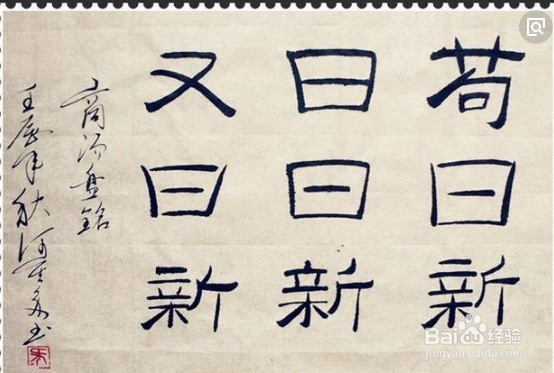 苟日新
日日新
又日新
商汤盘銘
壬辰年秋
Baidu 经验
jingyan.baidu.com